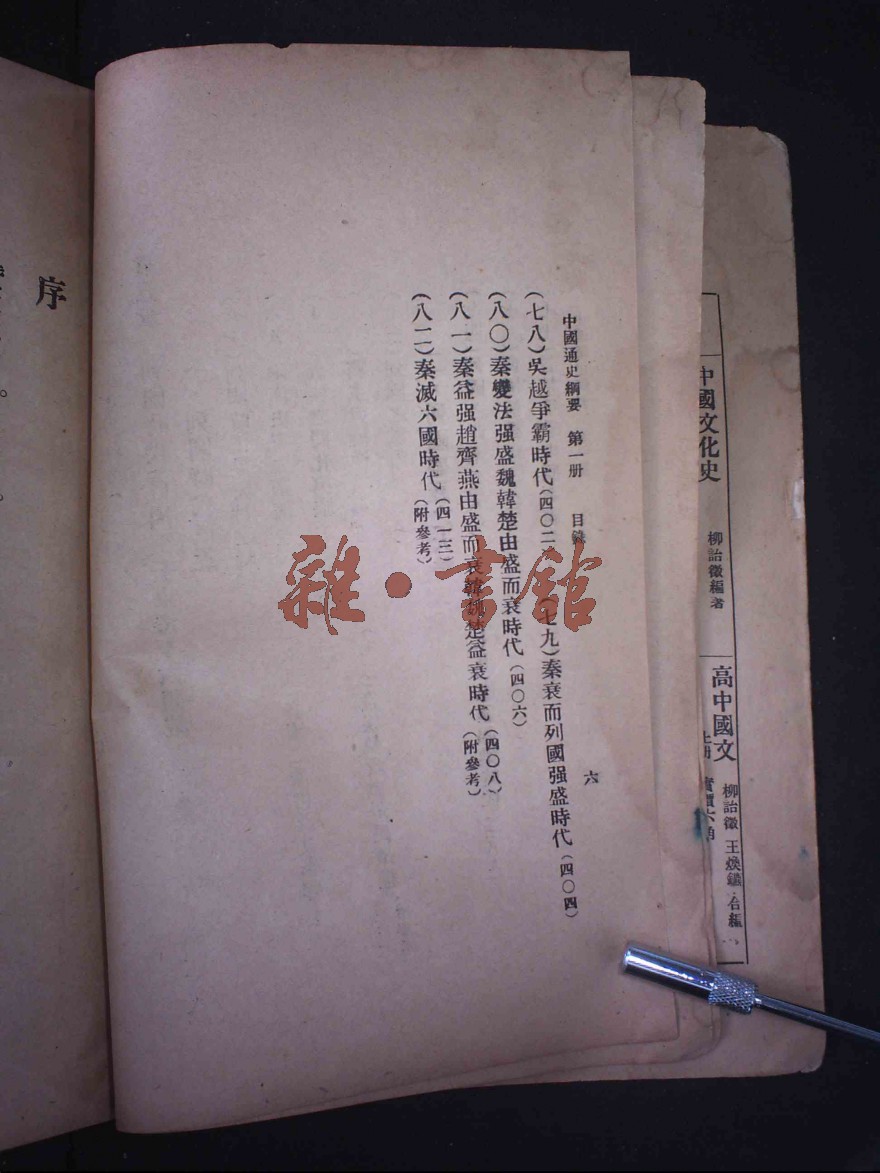 中國通史綱要 第一册 目錄 六
(七八)吳越爭霸時代(四〇二)(七九)秦衰而列國强盛時代(四〇四)
(八〇)秦變法强盛魏韓楚由盛而衰時代(四〇六)
(八一)秦益强趙齊燕由盛而衰韓魏楚益衰時代(四〇八)(附參考)
(八二)秦滅六國時代(四一三)(附參考)
雜·書館
序
中國文化史 柳詒徵編著
高中國文 柳詒徵 王煥鑣 合編
上册 實價六角